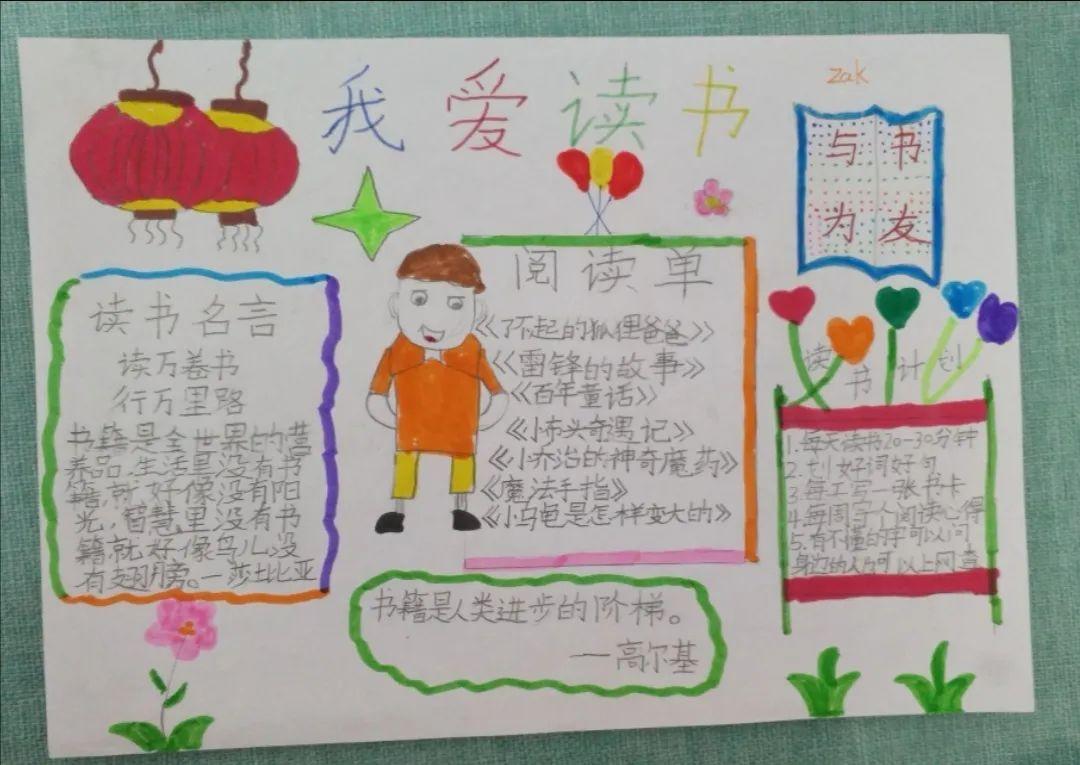 我爱读书
zak
与书
为友
读书名言
读万卷书
行万里路
书籍是全世界的营
养品,生活里没有书
籍,就好像没有阳
光,智慧里没有书
籍就好像鸟儿没
有翅膀。—莎士比亚
阅读单
《了不起的狐狸爸爸》
《雷锋的故事》
《百年童话》
《小布头奇遇记》
《小乔治的神奇魔药》
《魔法手指》
《小乌龟是怎样变大的》
书籍是人类进步的阶梯。
—高尔基
读书计划
1.每天读书20-30分钟
2.划好词好句
3.每工写一张书卡
4.每周写个阅读心得
5.有不懂的字可以问
身边的人也可以上网查